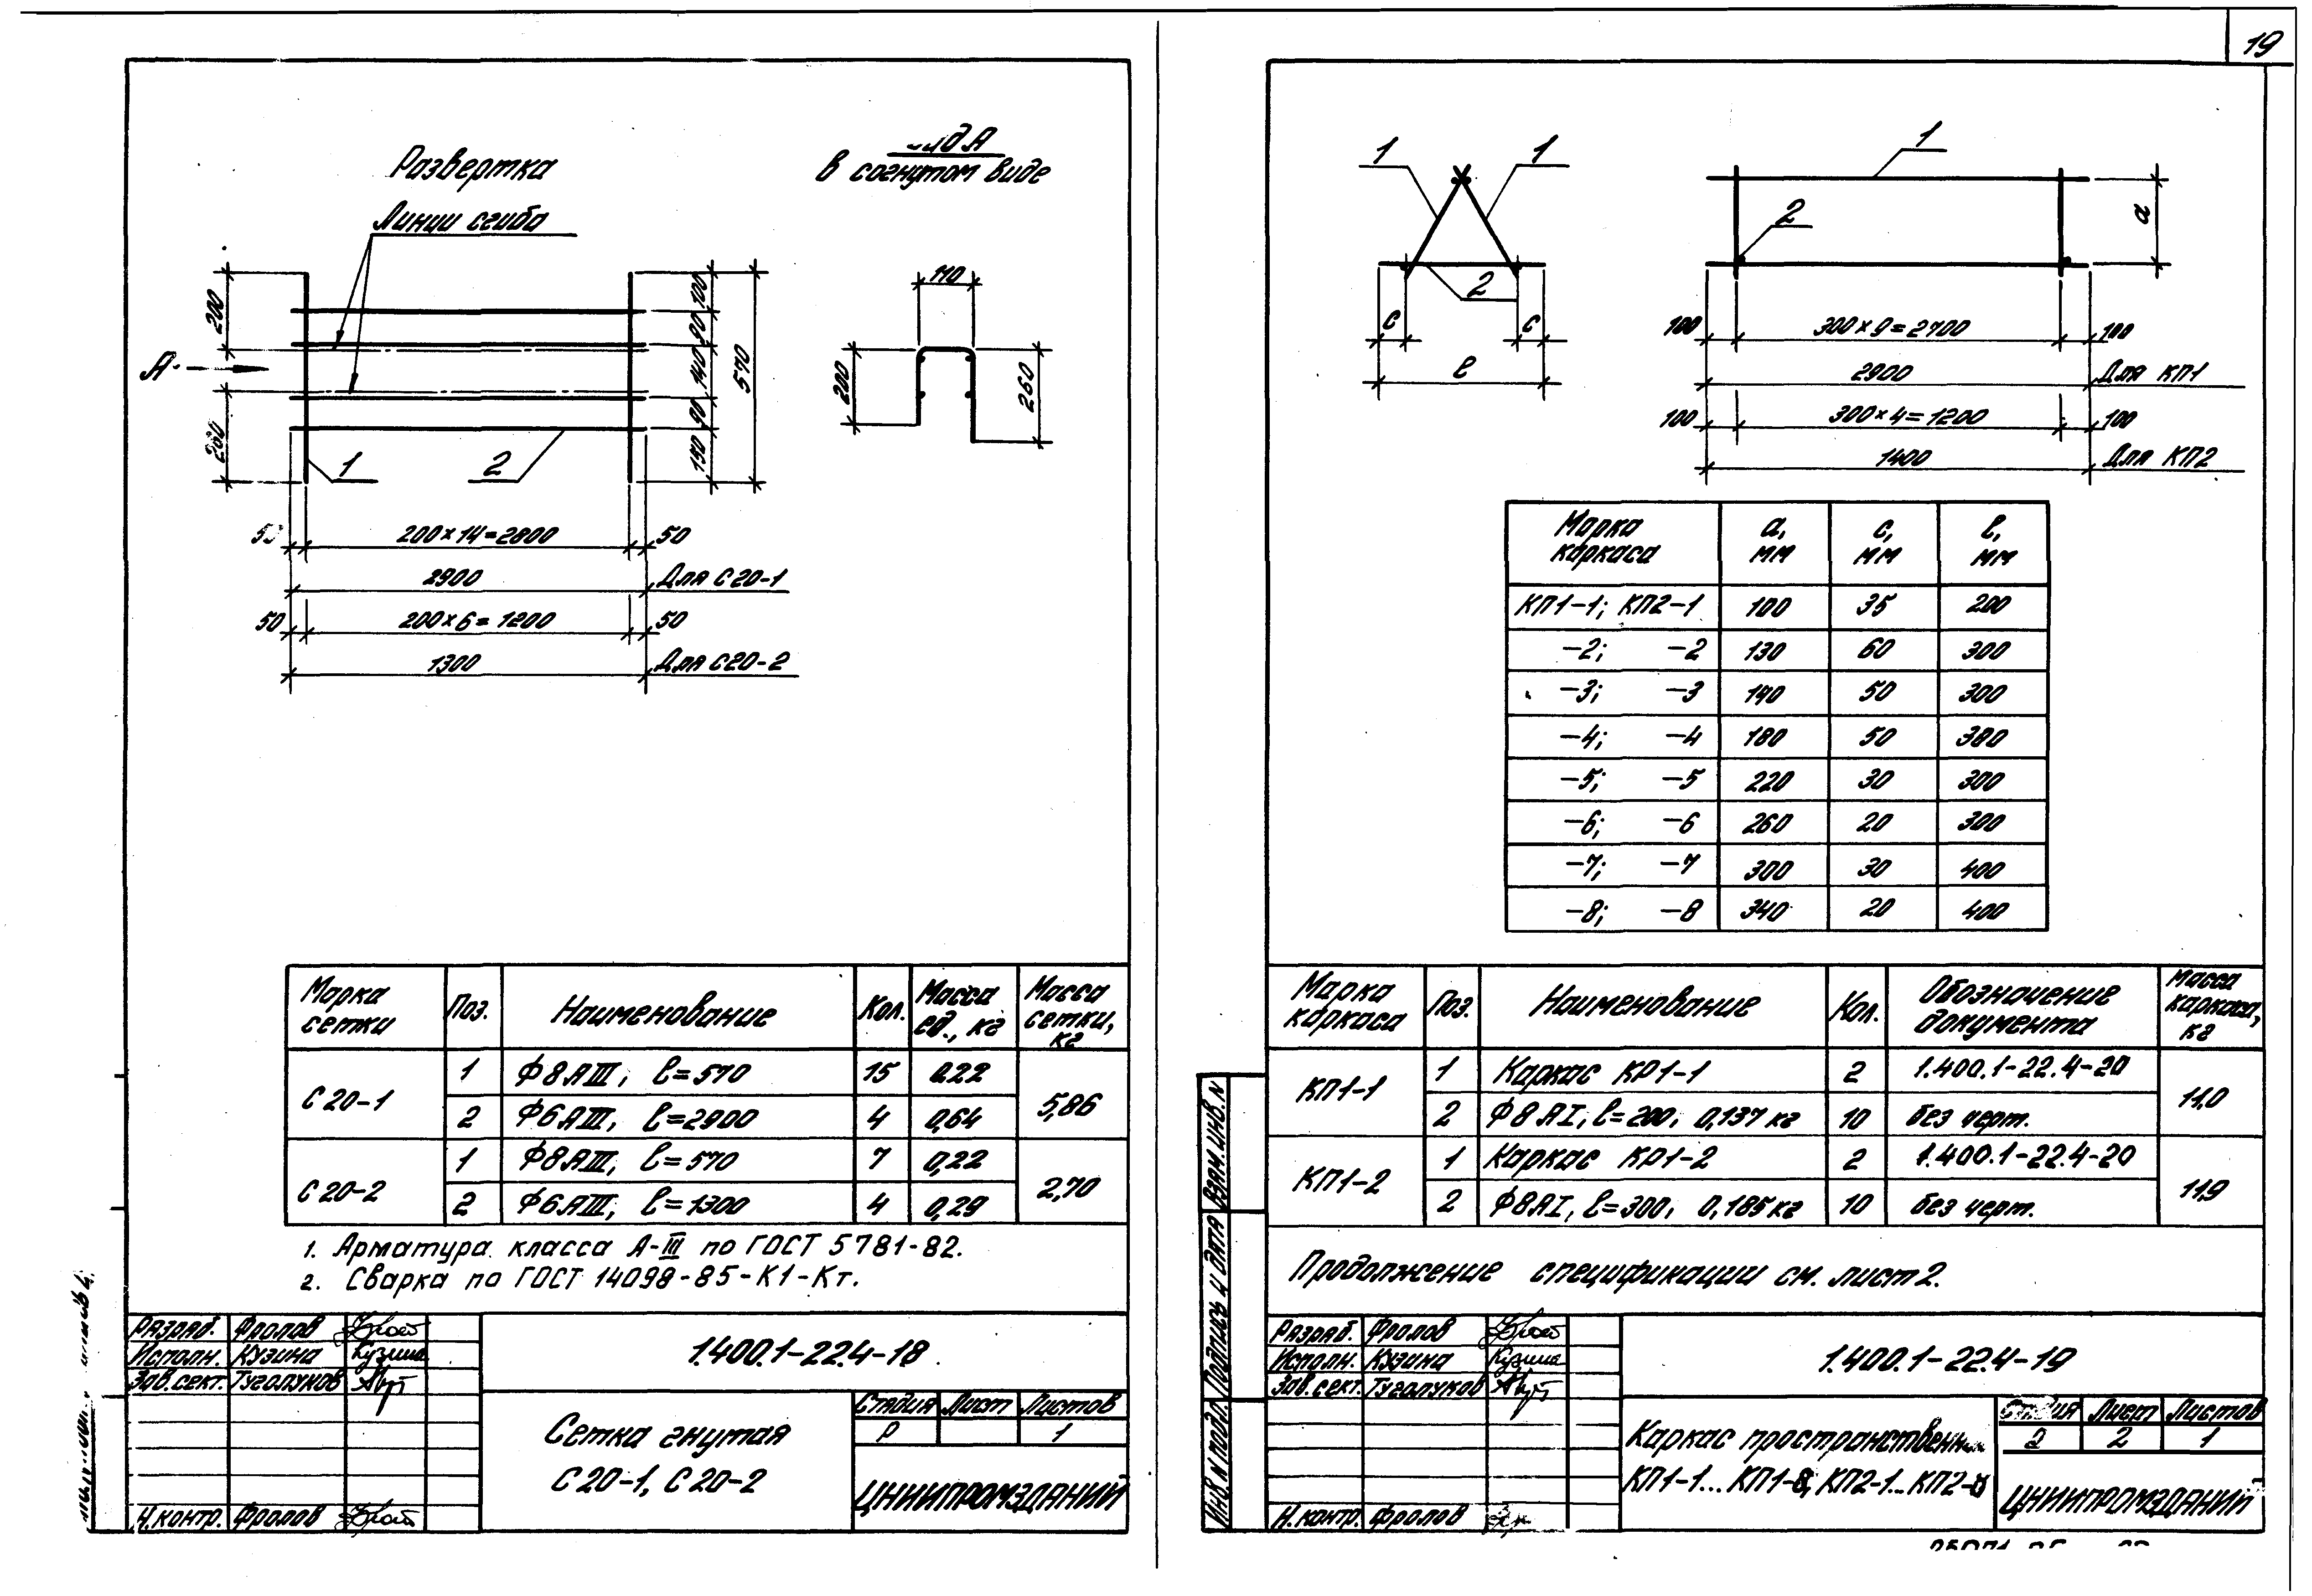 19
Развертка
Линии сгиба
200
А
260
1
2
100
90
140
90
150
570
50
200×14=2800
50
2900
Для С20-1
50
200×6=1200
50
1300
Для С20-2
А
в согнутом виде
110
200
260
Марка сетки
Поз.
Наименование
Кол.
Масса ед., кг
Масса сетки, кг
С20-1
1
Ф8АIII, ℓ=570
15
0.22
5,86
2
Ф6АIII, ℓ=2900
4
0,64
С20-2
1
Ф8АIII, ℓ=570
7
0,22
2,70
2
Ф6АIII, ℓ=1300
4
0,29
1. Арматура класса А-III по ГОСТ 5781-82.
2. Сварка по ГОСТ 14098-85-К1-Кт.
Разраб. Фролов
Исполн. Кузина Кузина
Зав.сект. Тугалуков
Н.контр. Фролов
1.400.1-22.4-18
Сетка гнутая
С20-1, С20-2
Стадия Лист Листов
Р 1
ЦНИИПРОМЗДАНИЙ
1
1
2
c
c
ℓ
1
2
a
100
300×9=2700
100
2900
Для КП1
100
300×4=1200
100
1400
Для КП2
Марка каркаса
a, мм
c, мм
ℓ, мм
КП1-1; КП2-1 100 35 200
-2; -2 130 60 300
-3; -3 140 50 300
-4; -4 180 50 380
-5; -5 220 30 300
-6; -6 260 20 300
-7; -7 300 30 400
-8; -8 340 20 400
Марка каркаса
Поз.
Наименование
Кол.
Обозначение документа
Масса каркаса, кг
КП1-1
1
Каркас КР1-1
2
1.400.1-22.4-20
11,0
2
Ф8АI, ℓ=200, 0,137 кг
10
без черт.
КП1-2
1
Каркас КР1-2
2
1.400.1-22.4-20
11,9
2
Ф8АI, ℓ=300, 0,185 кг
10
без черт.
Продолжение спецификации см. лист 2.
Взам. инв. N
Подпись и дата
Инв. N подл.
Разраб. Фролов
Исполн. Кузина Кузина
Зав.сект. Тугалуков
Н.контр. Фролов
1.400.1-22.4-19
Каркас
КП1-1...КП1-8, КП2-1...КП2-8
Лист Листов
2 2 1
ЦНИИПРОМЗДАНИЙ